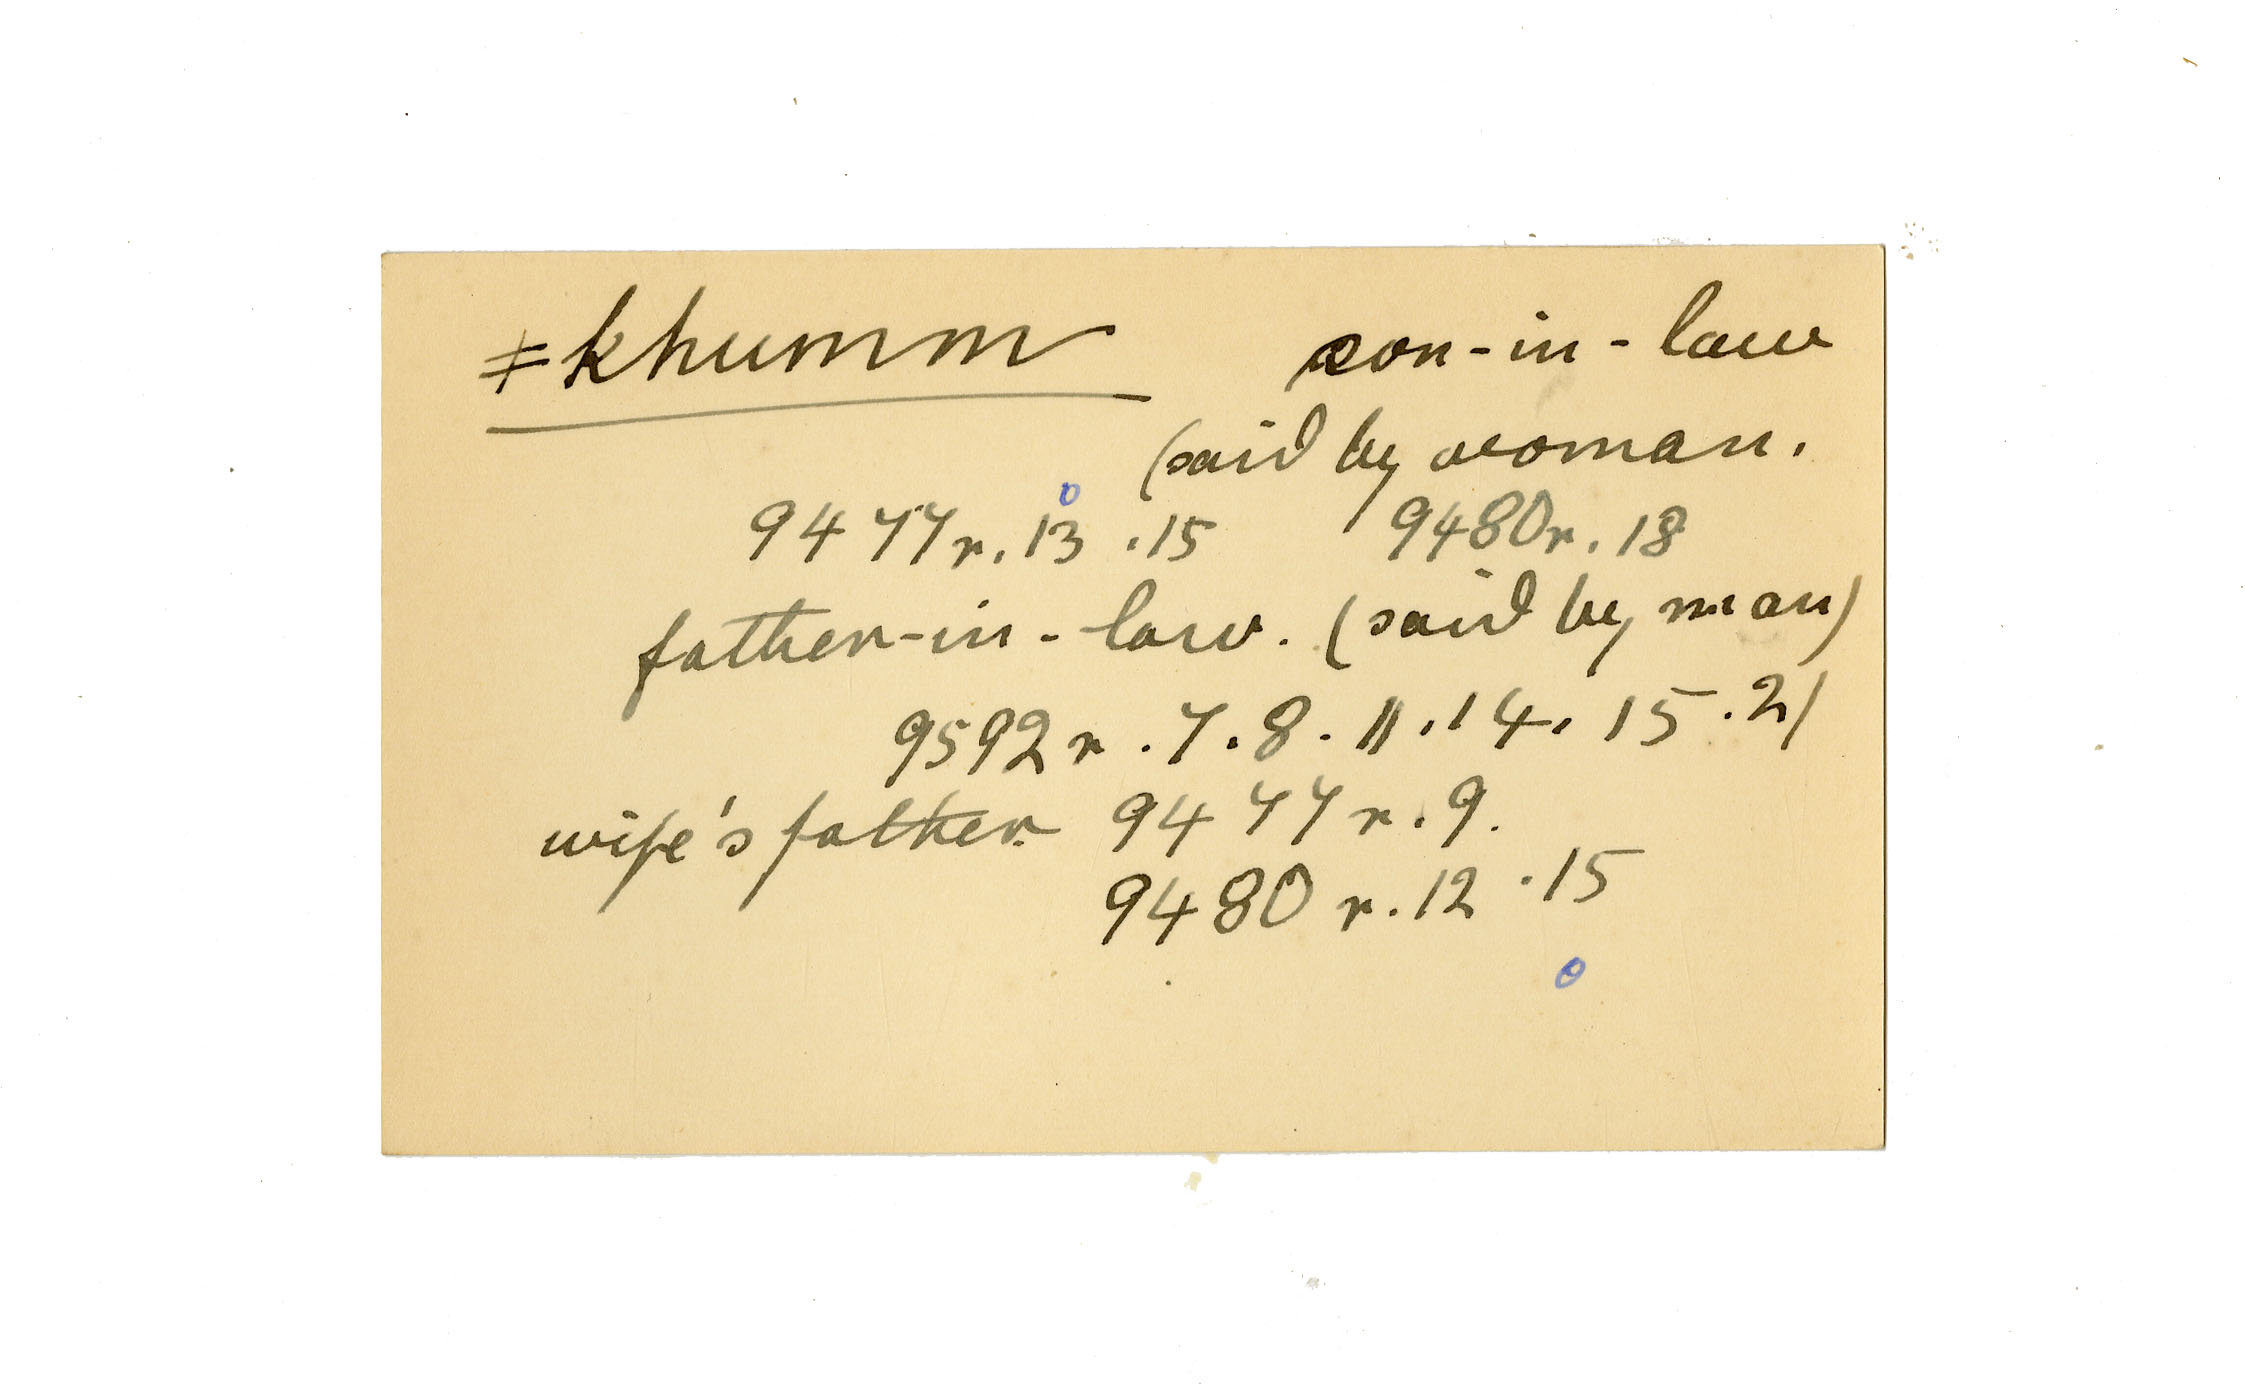 ǂkhumm son-in-law
(said by woman.
9477r.13 .15 9480r.18
father-in-law. (said by man)
9592r.7.8.11.14.15.21
wife's father 9477r.9.
9480r.12.15